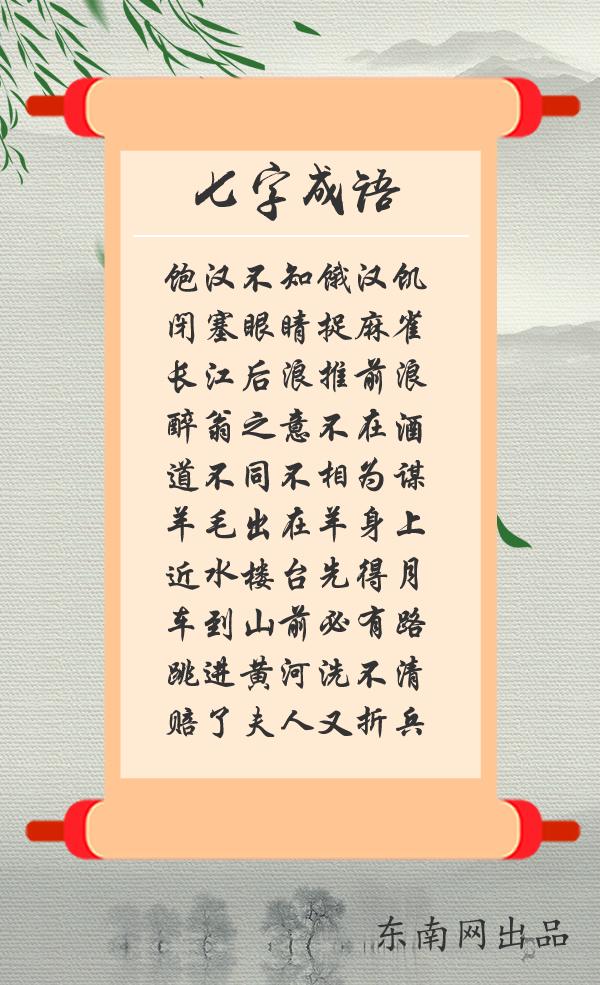 七字成语
饱汉不知饿汉饥
闭塞眼睛捉麻雀
长江后浪推前浪
醉翁之意不在酒
道不同不相为谋
羊毛出在羊身上
近水楼台先得月
车到山前必有路
跳进黄河洗不清
赔了夫人又折兵
东南网出品